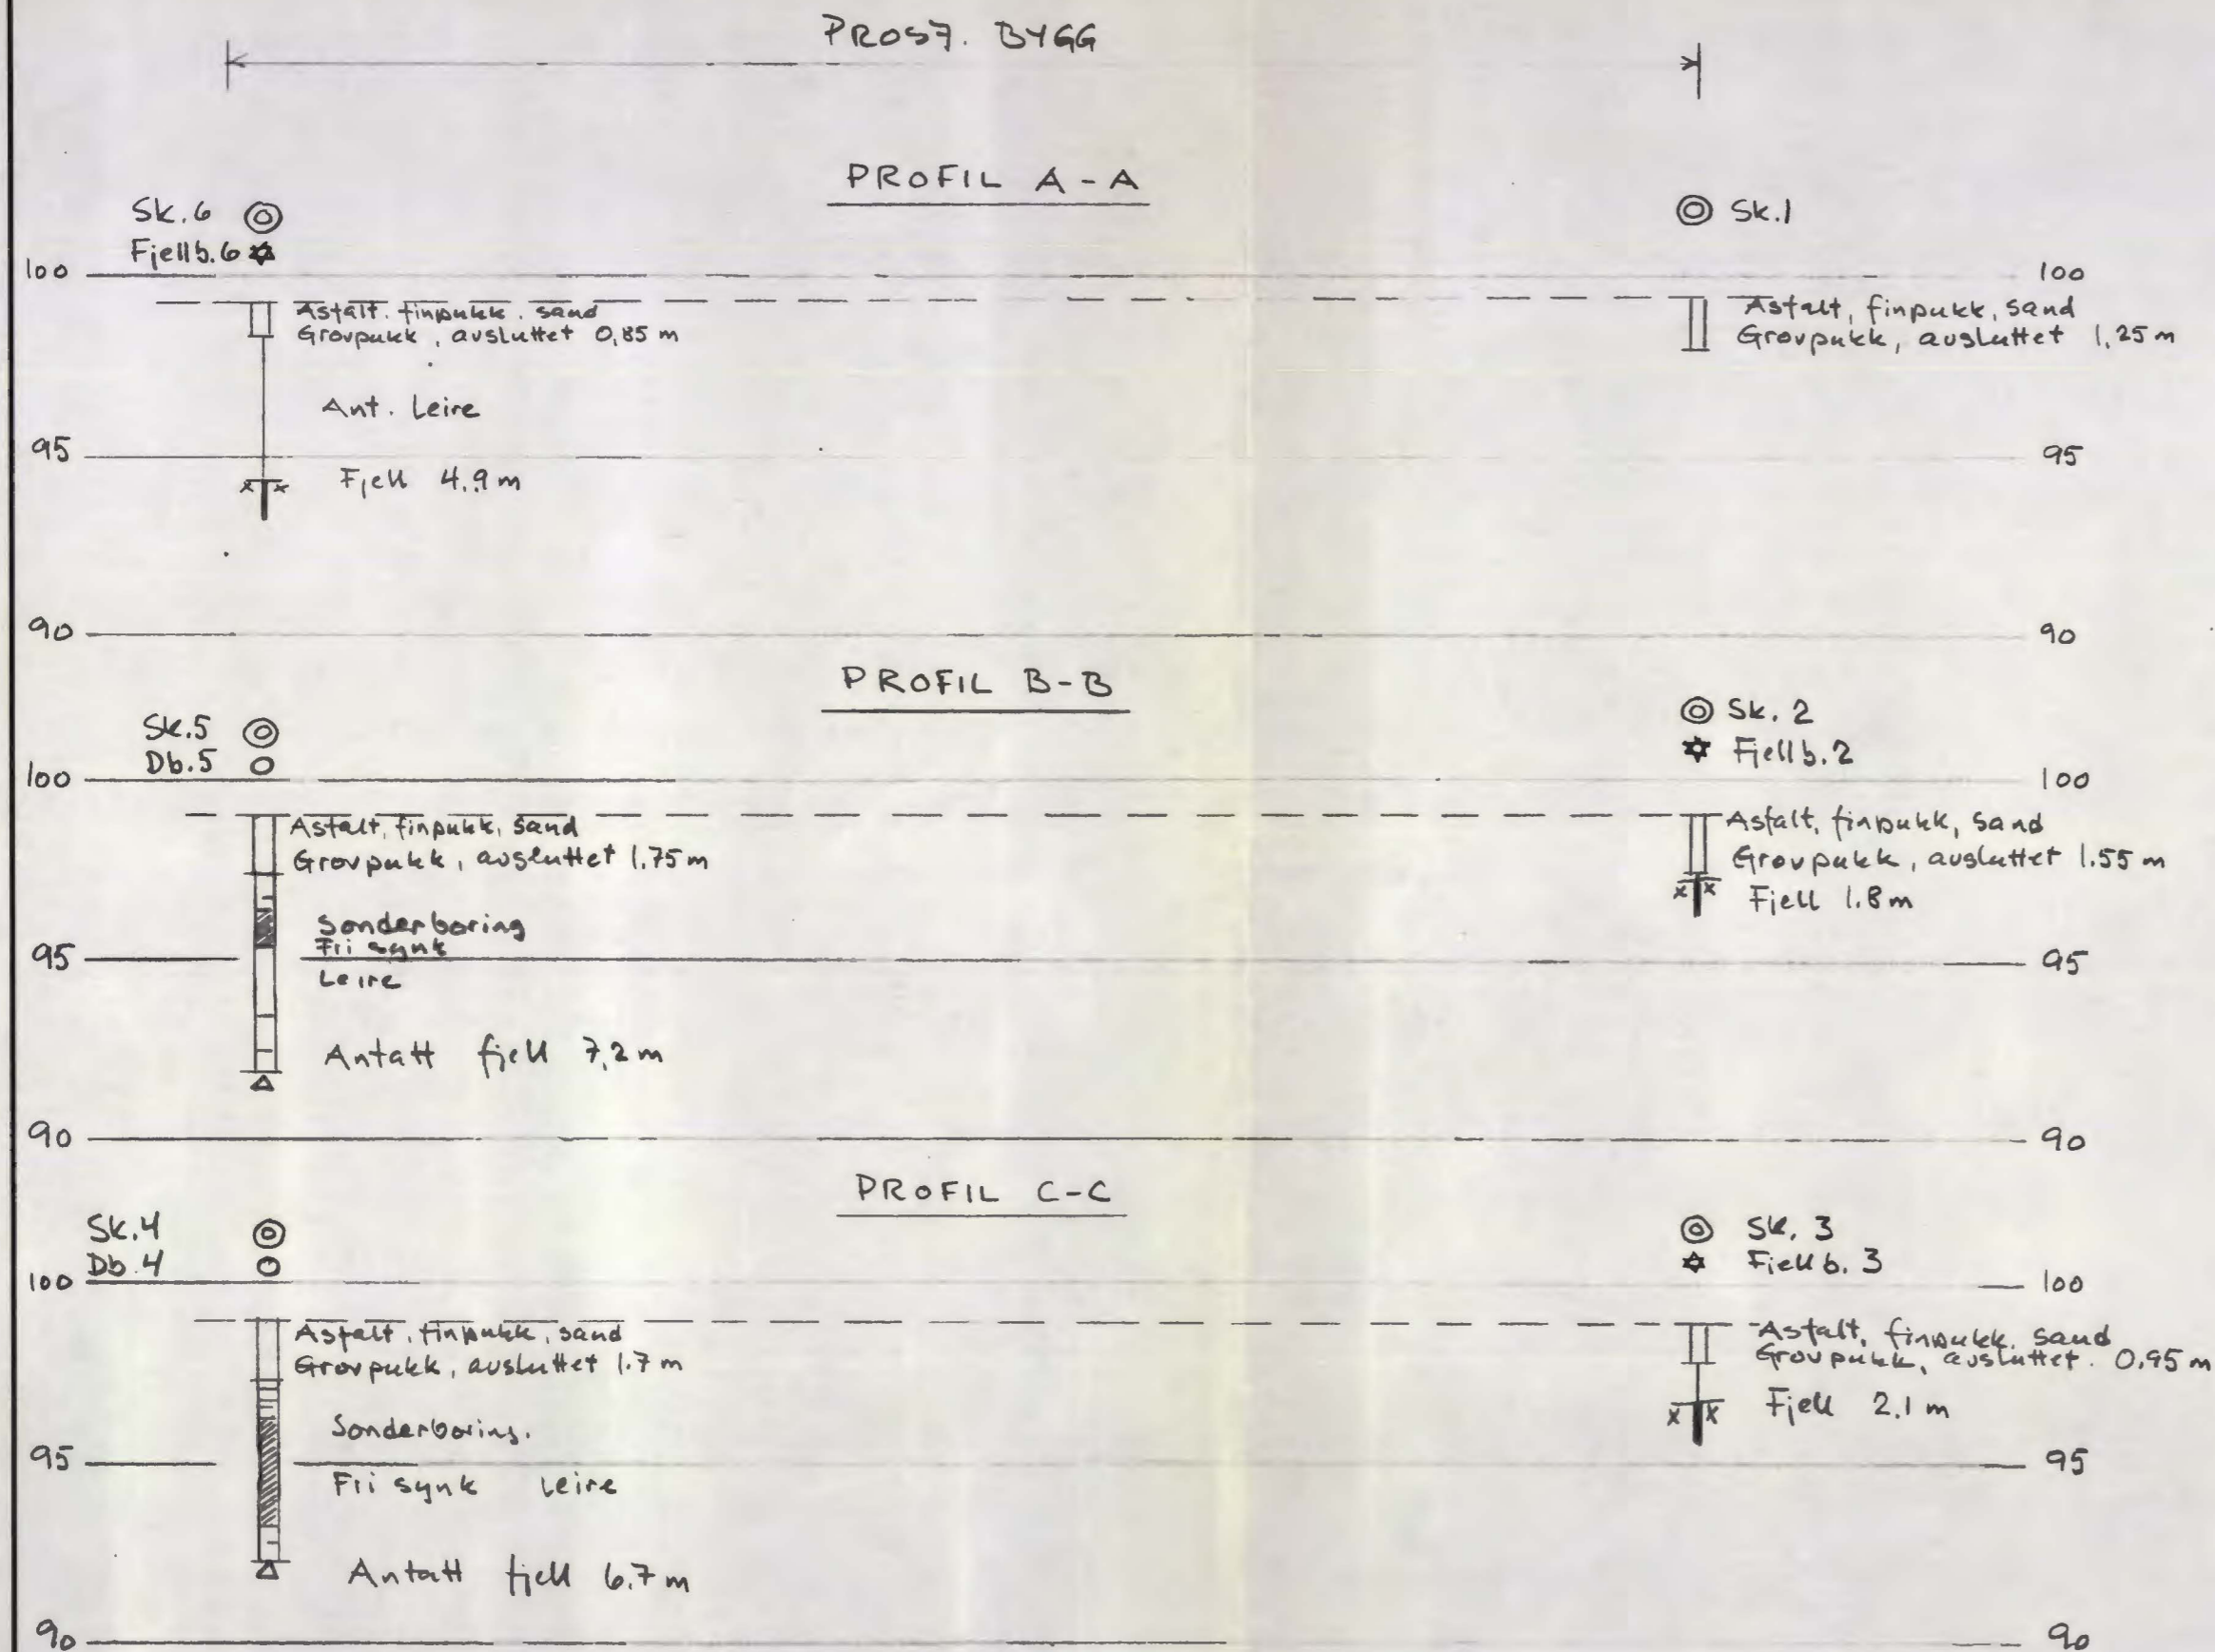 PROSJ. BYGG
PROFIL A-A
Sk.6
Fjellb.6
Sk.1
100
100
Asfalt. finpukk. sand
Grovpukk, avsluttet 0,85 m
Asfalt, finpukk, sand
Grovpukk, avsluttet 1,25 m
Ant. Leire
95
95
Fjell 4.9 m
90
90
PROFIL B-B
Sk.5
Db.5
Sk. 2
Fjellb.2
100
100
Asfalt, finpukk, sand
Grovpukk, avsluttet 1.75 m
Asfalt, finpukk, sand
Grovpukk, avsluttet 1.55 m
Fjell 1.8 m
Sonderboring
Fri synk
95
95
Leire
Antatt fjell 7,2 m
90
90
PROFIL C-C
Sk.4
Db.4
Sk. 3
Fjellb. 3
100
100
Asfalt, finpukk, sand
Grovpukk, avsluttet 1.7 m
Asfalt, finpukk, sand
Grovpukk, avsluttet. 0.95 m
Fjell 2.1 m
Sonderboring.
95
95
Fri synk Leire
Antatt fjell 6.7 m
90
90